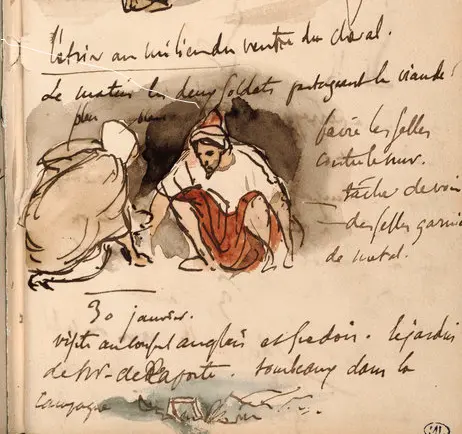 l'étrier au milieu du ventre du cheval.
Le matin les deux soldats partageant la viande
faire les selles
contre le mur.
tâcher de voir
des selles garnies
de métal.
30 janvier.
visite au consul anglais et suédois. le jardin
de Mr. de Laporte. tombeaux dans la
campagne